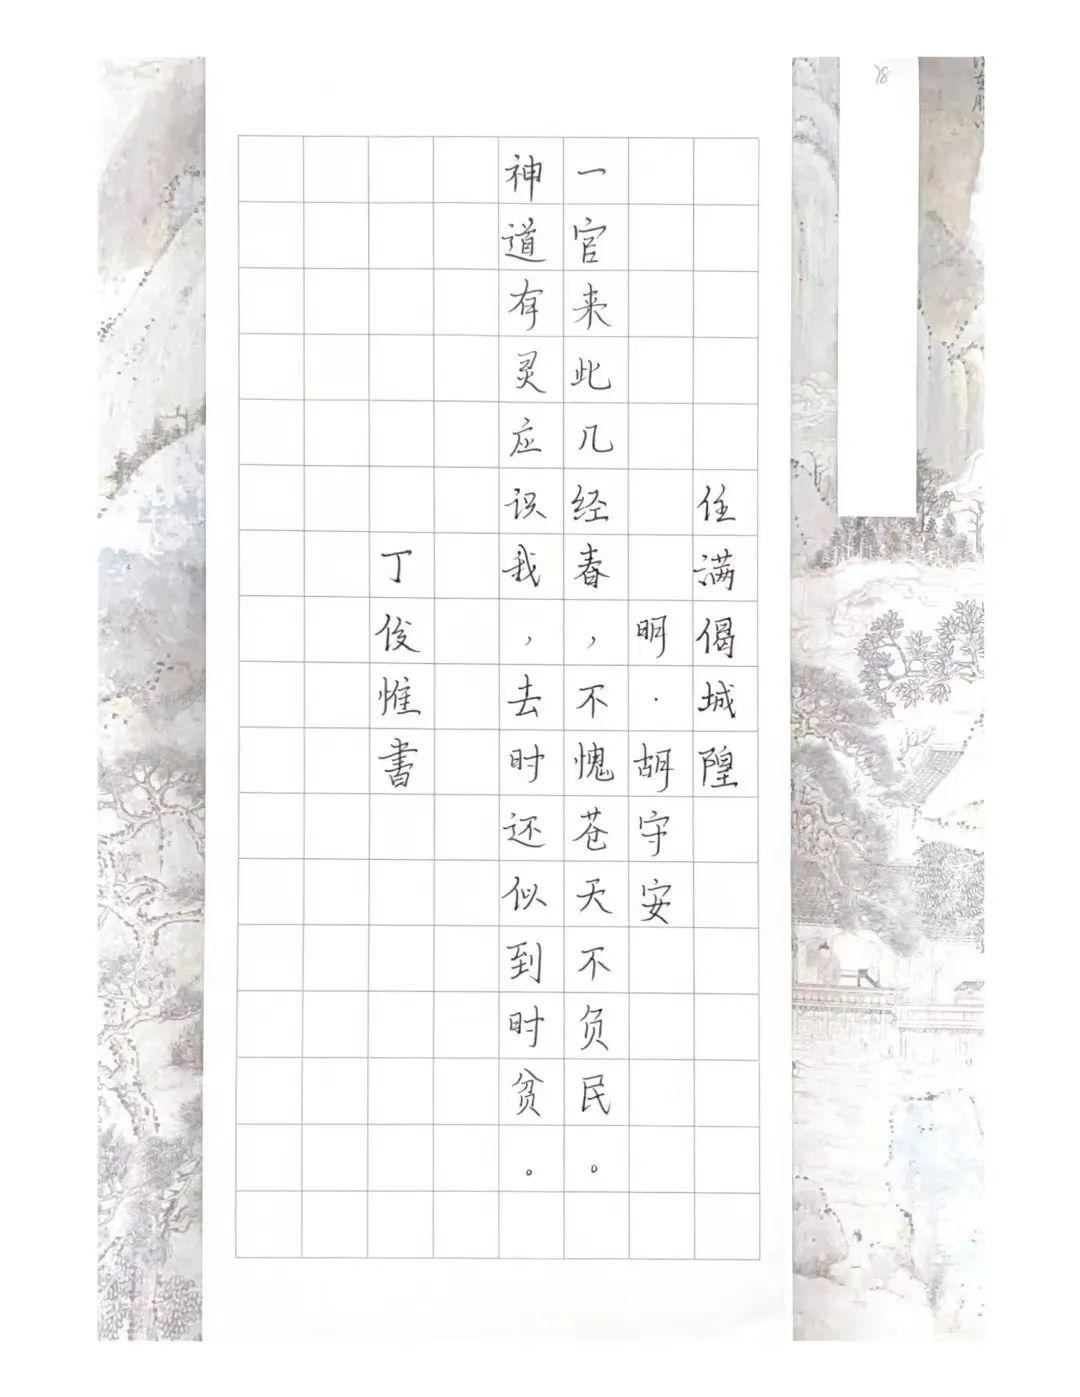 任满偈城隍
明·胡守安
一官来此几经春，不愧苍天不负民。
神道有灵应识我，去时还似到时贫。
丁俊惟书